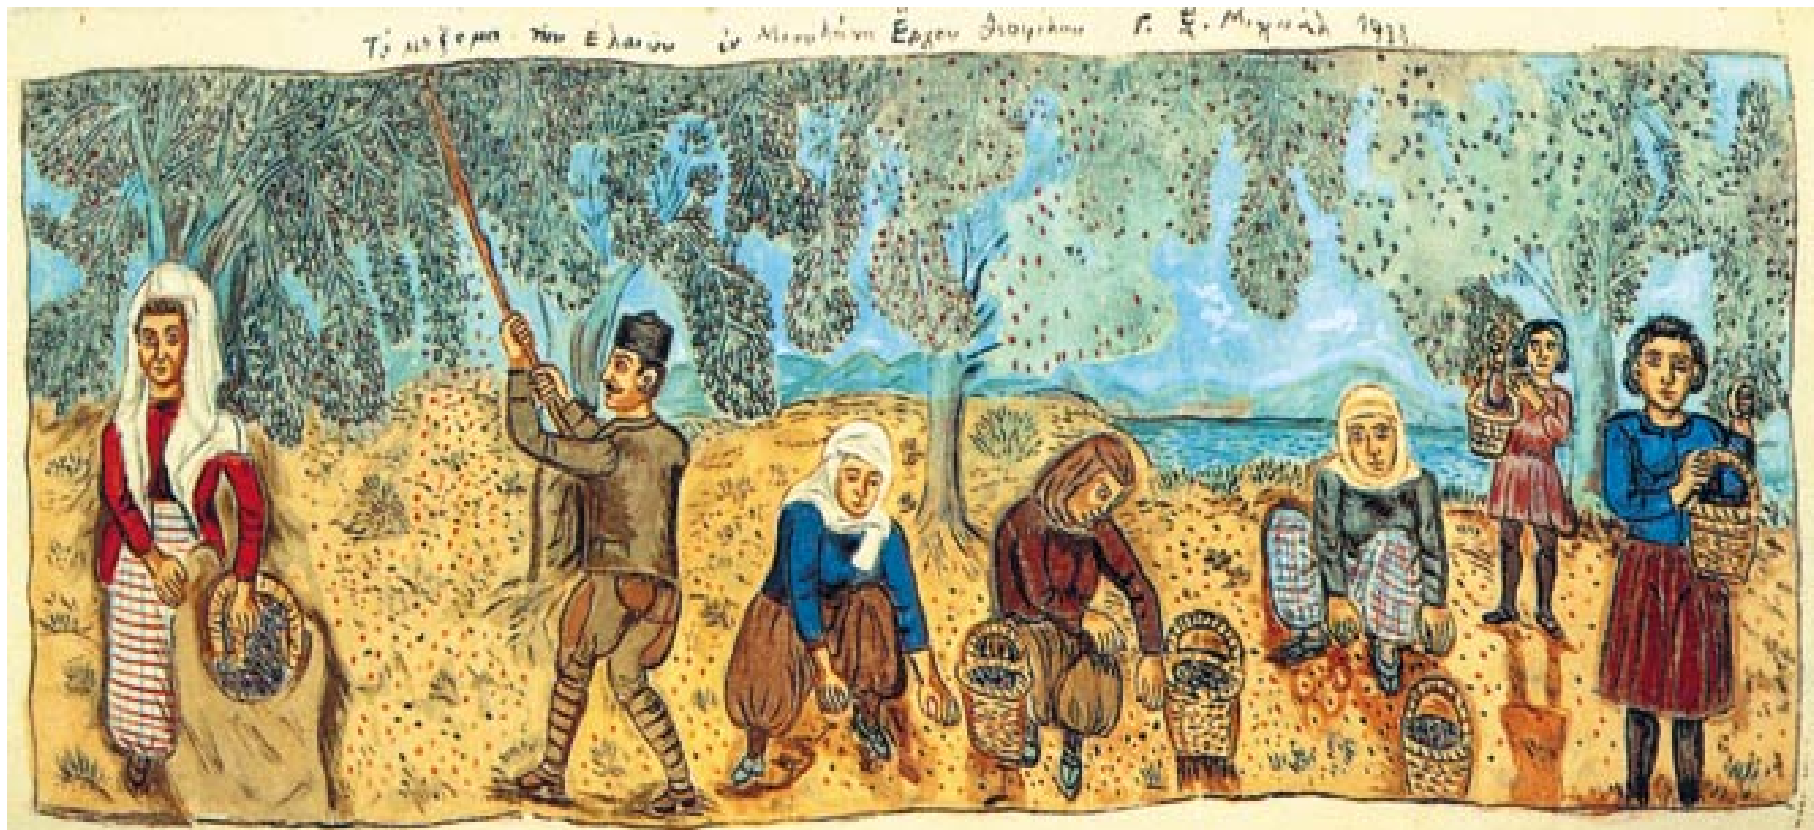 Τό μάζεμα τῶν Ἐλαιῶν ἐν Μυτιλήνη Ἔργον Θεοφίλου Γ. Χ. Μιχαήλ 1933